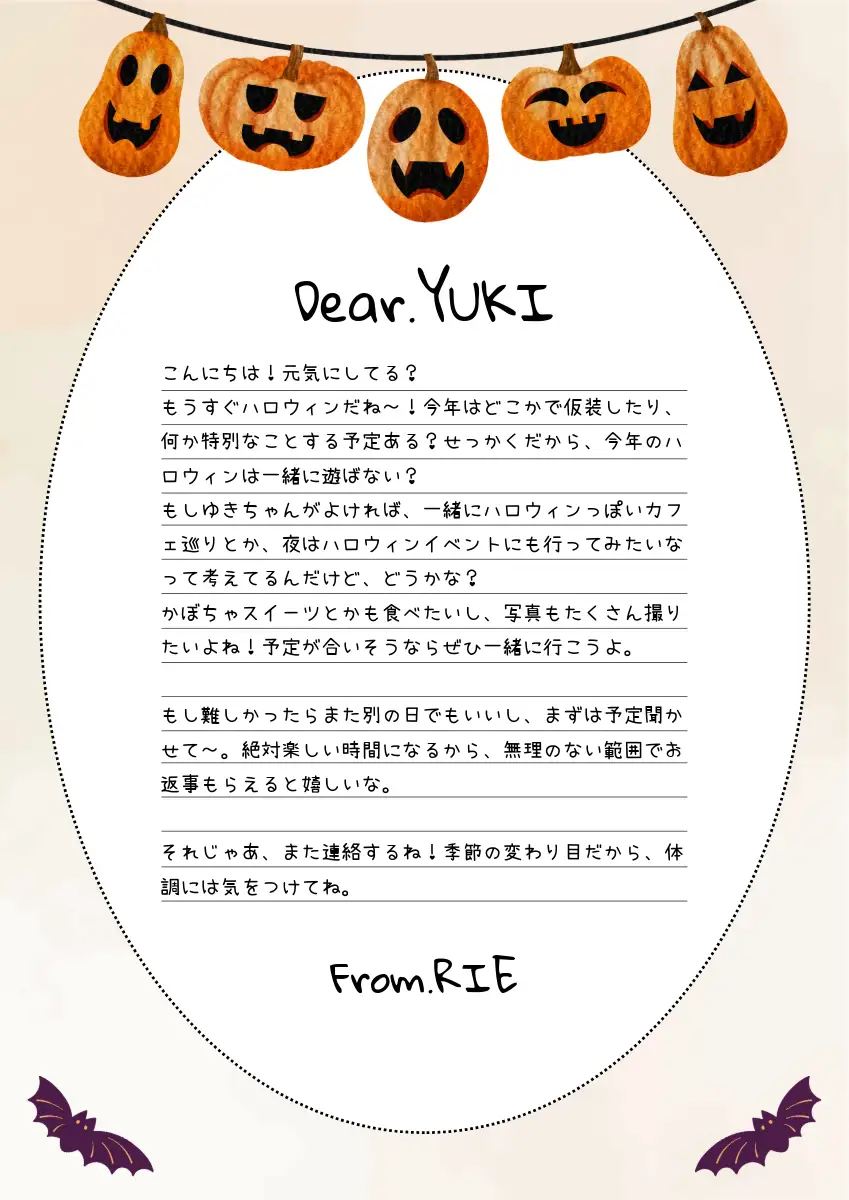 Dear.YUKI
こんにちは！元気にしてる？
もうすぐハロウィンだね〜！今年はどこかで仮装したり、
何か特別なことする予定ある？せっかくだから、今年のハ
ロウィンは一緒に遊ばない？
もしゆきちゃんがよければ、一緒にハロウィンっぽいカフ
ェ巡りとか、夜はハロウィンイベントにも行ってみたいな
って考えてるんだけど、どうかな？
かぼちゃスイーツとかも食べたいし、写真もたくさん撮り
たいよね！予定が合いそうならぜひ一緒に行こうよ。
もし難しかったらまた別の日でもいいし、まずは予定聞か
せて〜。絶対楽しい時間になるから、無理のない範囲でお
返事もらえると嬉しいな。
それじゃあ、また連絡するね！季節の変わり目だから、体
調には気をつけてね。
From.RIE